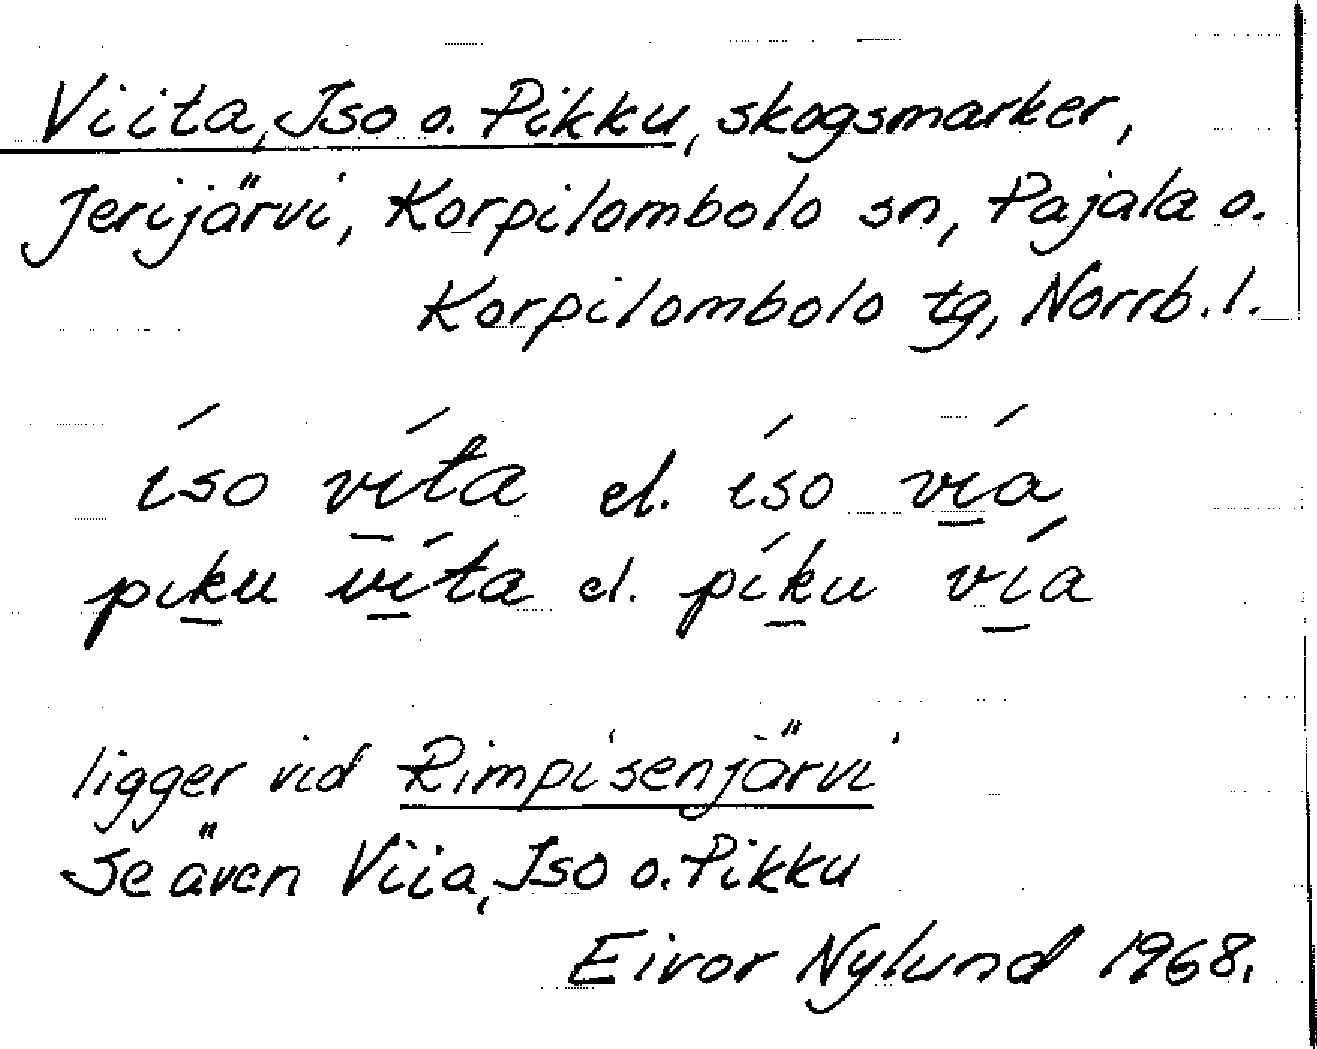 Viita, Iso o. Pikku, skogsmarker,
Jerijärvi, Korpilombolo sn, Pajala o.
Korpilombolo tg, Norrb. l.
íso ví̱ta el. íso ví̱a
piḵu ví̱ta el. píḵu ví̱a
ligger vid Rimpisenjärvi
Se även Viia, Iso o. Pikku
Eivor Nylund 1968.